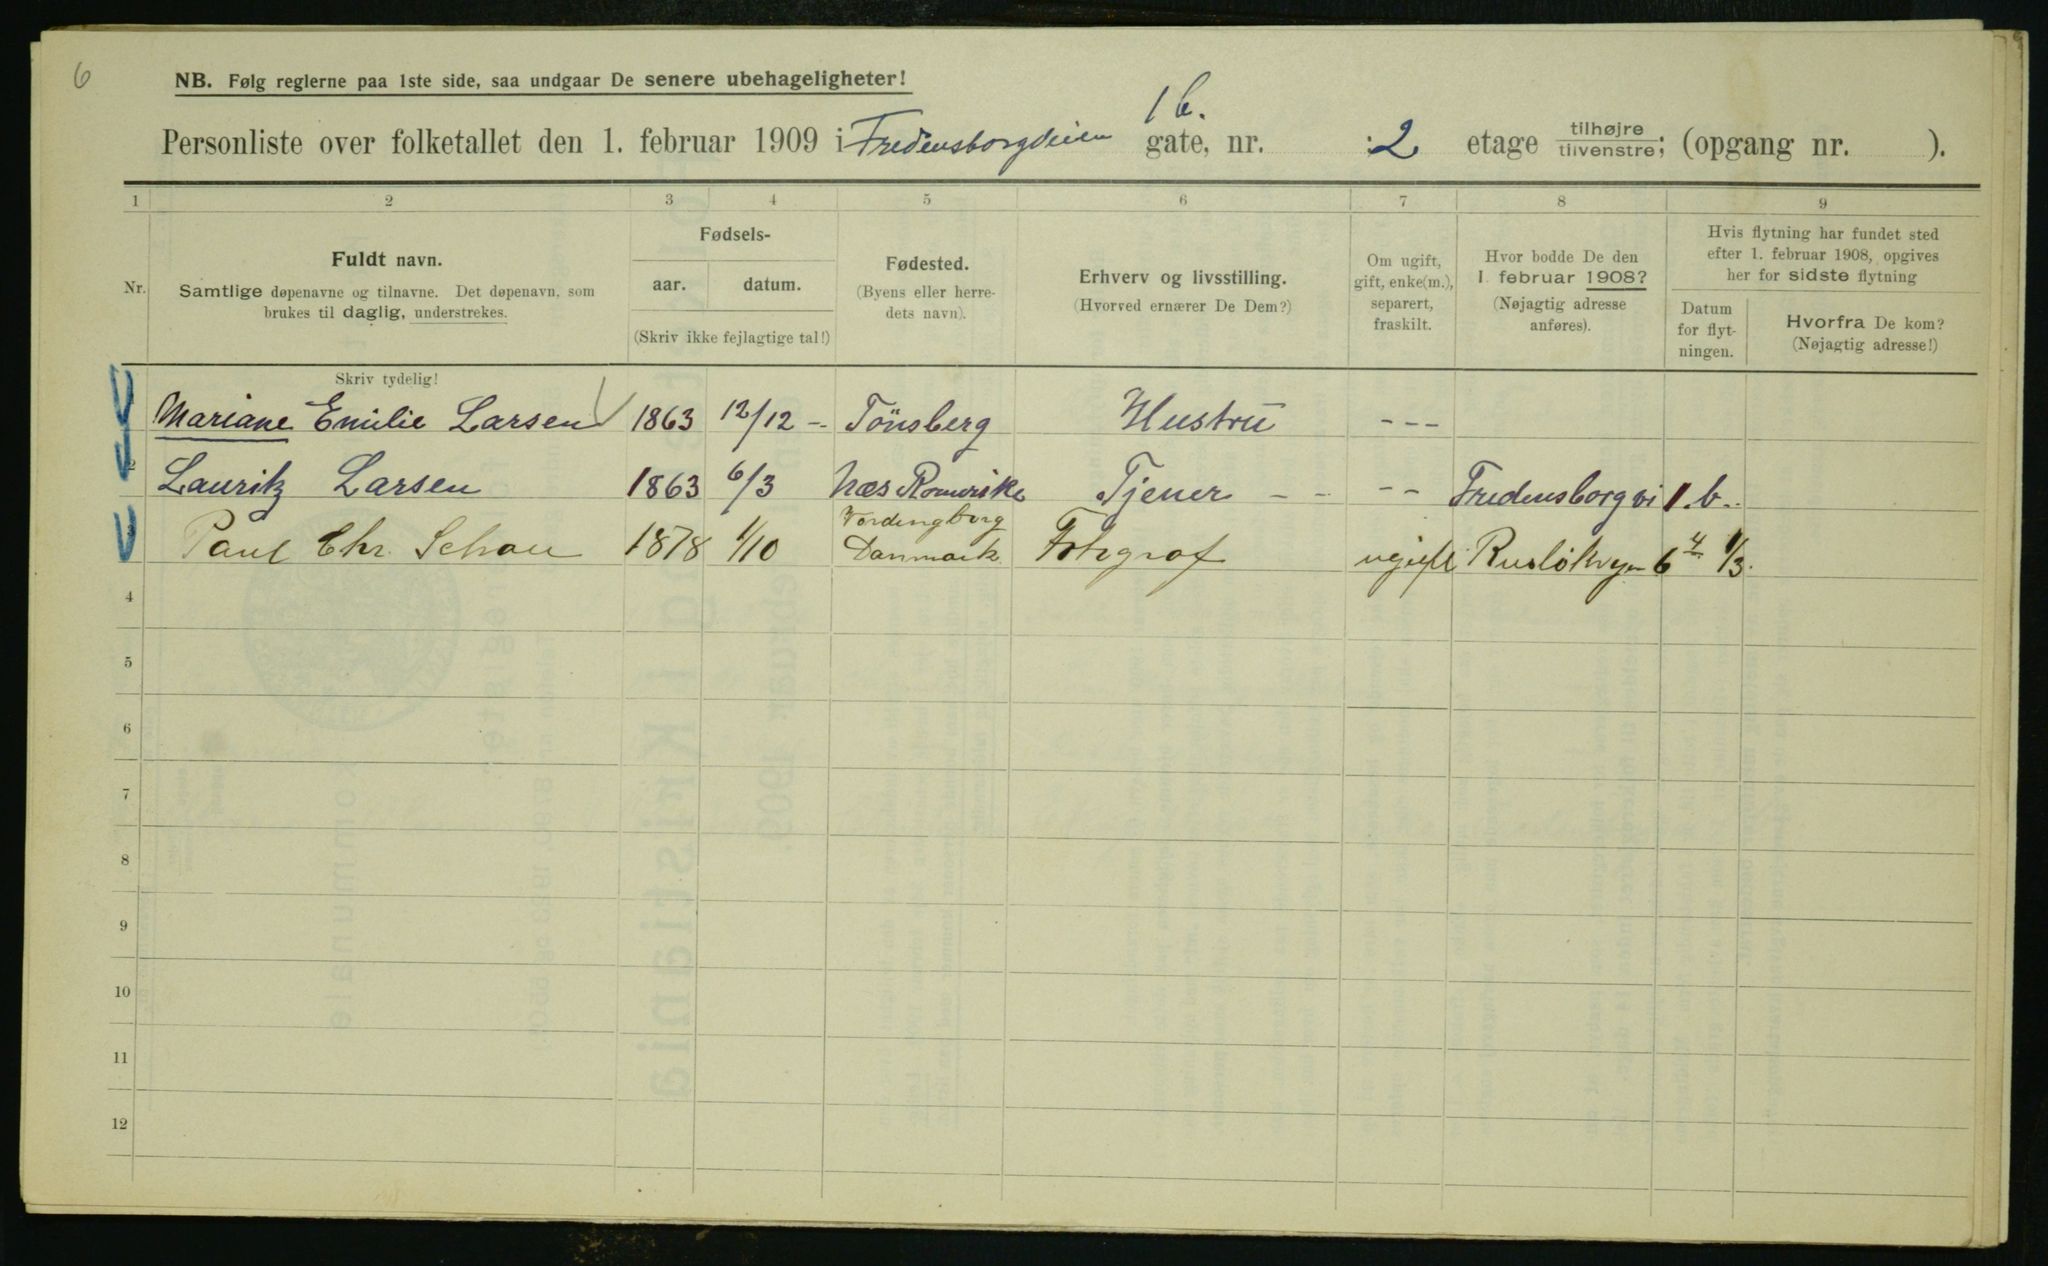 6
NB. Følg reglerne paa 1ste side, saa undgaar De senere ubehageligheter!
Personliste over folketallet den 1. februar 1909 i Fredensborgveien gate, nr. 1 b. : 2 etage tilhøjre tilvenstre; (opgang nr. ).
1 2 3 4 5 6 7 8 9
Nr.
Fuldt navn.
Samtlige døpenavne og tilnavne. Det døpenavn, som
brukes til daglig, understrekes.
Fødsels-
aar. datum.
(Skriv ikke fejlagtige tal!)
Fødested.
(Byens eller herre-
dets navn).
Erhverv og livsstilling.
(Hvorved ernærer De Dem?)
Om ugift,
gift, enke(m.),
separert,
fraskilt.
Hvor bodde De den
1. februar 1908?
(Nøjagtig adresse
anføres).
Hvis flytning har fundet sted
efter 1. februar 1908, opgives
her for sidste flytning
Datum
for flyt-
ningen.
Hvorfra De kom?
(Nøjagtig adresse!)
Skriv tydelig!
Mariane Emilie Larsen 1863 12/12 - Tönsberg Hustru - - -
2 Lauritz Larsen 1863 6/3 Næs Romerike Tjener - - - - Fredensborgvi 1.b.
3 Paul Chr. Schou 1878 1/10 Vordingborg Danmark Fotograf ugift Rusløkvejen 6 4 1/3.
4
5
6
7
8
9
10
11
12